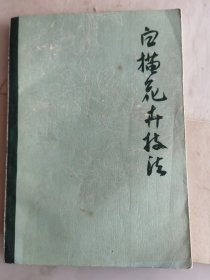 白描花卉技法